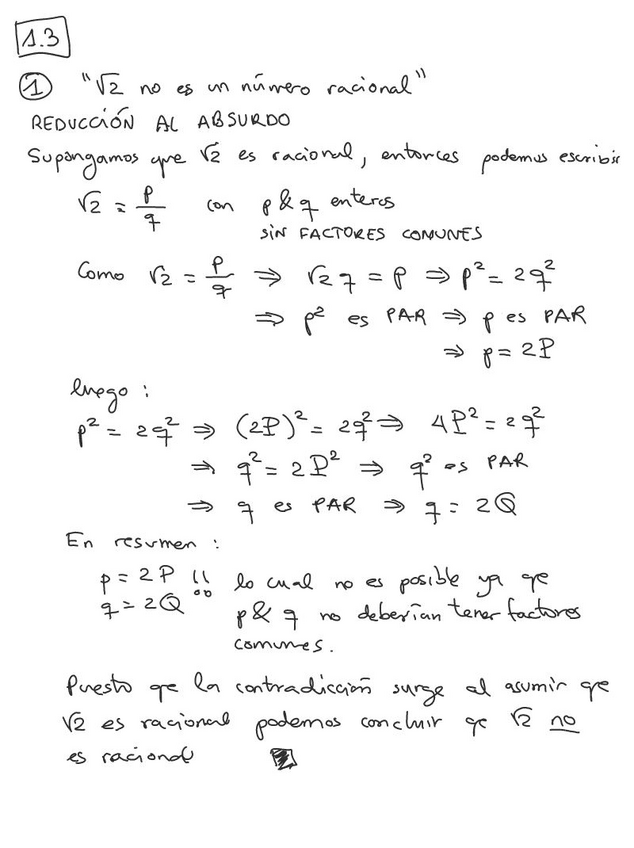 1.3
① "√2 no es un número racional"
REDUCCIÓN AL ABSURDO
Supongamos que √2 es racional, entonces podemos escribir
√2 = p/q con p & q enteros
SIN FACTORES COMUNES
Como √2 = p/q ⇒ √2 q = p ⇒ p² = 2q²
⇒ p² es PAR ⇒ p es PAR
⇒ p = 2P
luego :
p² = 2q² ⇒ (2P)² = 2q² ⇒ 4P² = 2q²
⇒ q² = 2P² ⇒ q² es PAR
⇒ q es PAR ⇒ q = 2Q
En resumen :
p = 2P !! lo cual no es posible ya qe
q = 2Q p & q no deberían tener factores
comunes.
Puesto qe la contradicción surge al asumir qe
√2 es racional podemos concluir qe √2 no
es racional